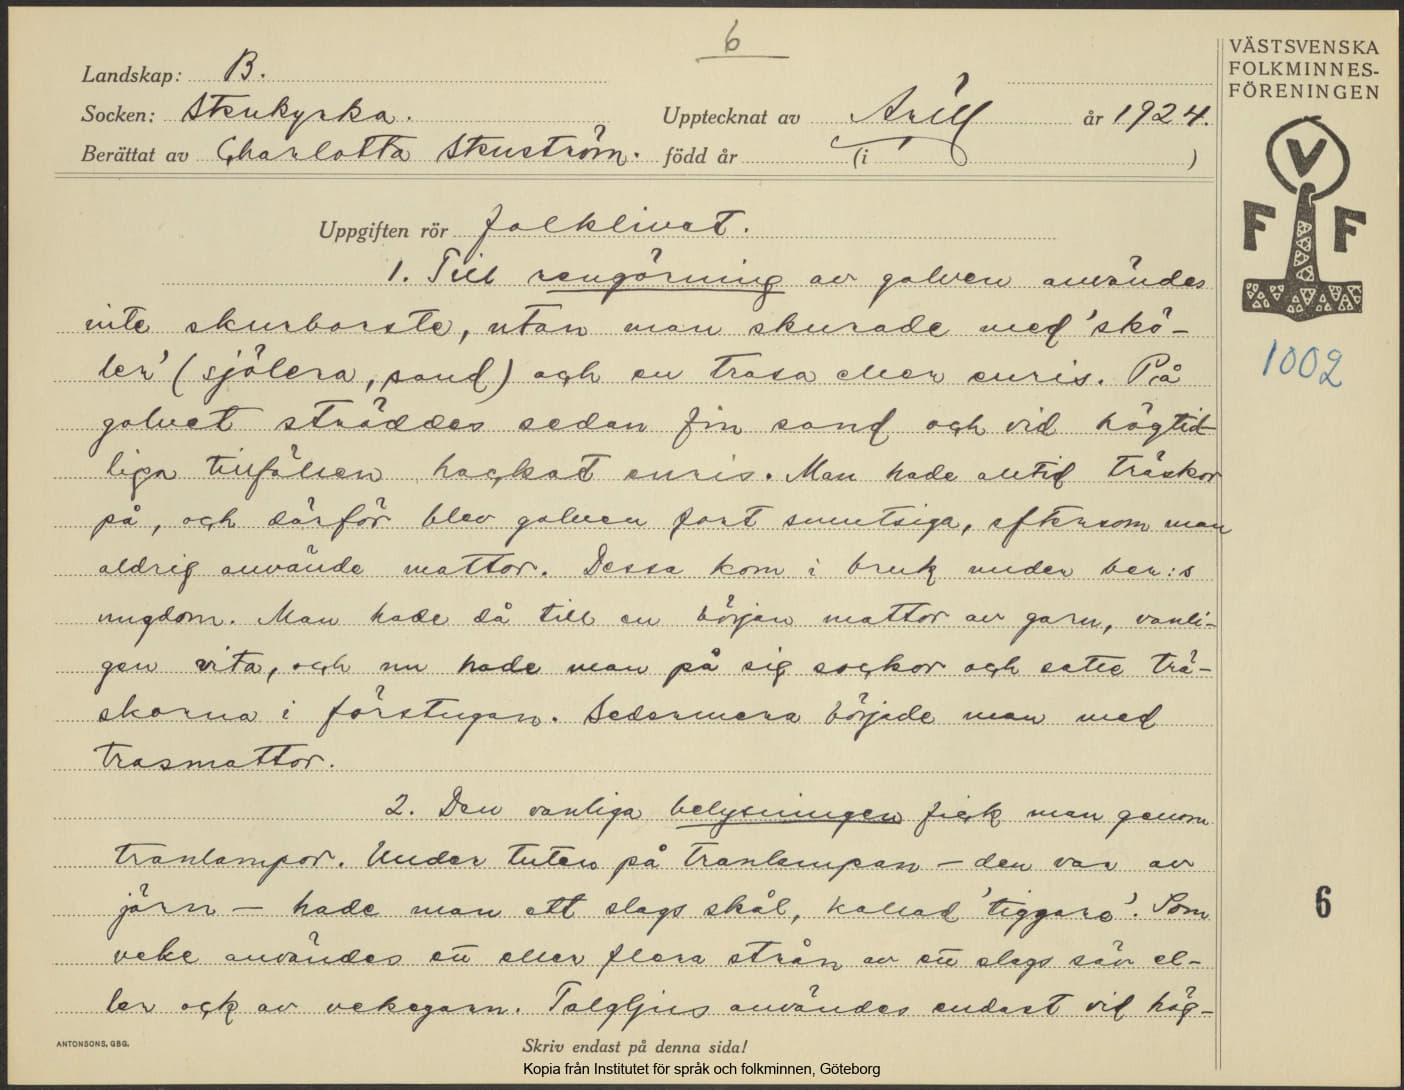 6
VÄSTSVENSKA
FOLKMINNES-
FÖRENINGEN
Landskap: B.
Socken: Stenkyrka. Upptecknat av Arill år 1924.
Berättat av Charlotta Stenström. född år (i )
V
F F
1002
Uppgiften rör folklivet.
1. Till rengörning av golven användes
inte skurborste, utan man skurade med 'skö-
ler' (sjölera, sand) och en trasa eller enris. På
golvet ströddes sedan fin sand och vid högtid-
liga tillfällen hackat enris. Man hade alltid träskor
på, och därför blev golven fort smutsiga, eftersom man
aldrig använde mattor. Dessa kom i bruk under ber:s
ungdom. Man hade då till en början mattor av garn, vanli-
gen vita, och nu hade man på sig sockor och satte trä-
skorna i förstugan. Sedermera började man med
trasmattor.
2. Den vanliga belysningen fick man genom
tranlampor. Under tuten på tranlampan – den var av
järn – hade man ett slags skål, kallad 'tiggare'. Som
veke användes en eller flera strån av en slags säv el-
ler ock av vekegarn. Talgljus användes endast vid hög-
6
ANTONSONS, GBG.
Skriv endast på denna sida!
Kopia från Institutet för språk och folkminnen, Göteborg